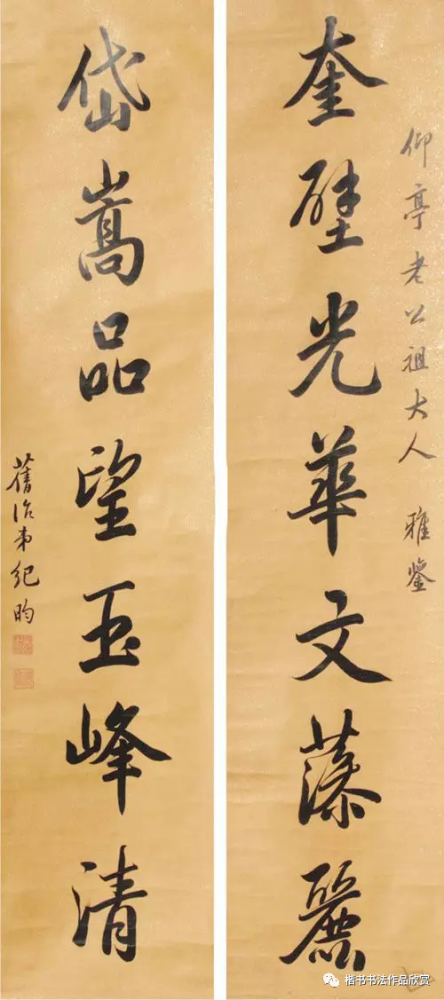 仰亭老公祖大人 雅鑒
奎壁光華文藻麗
岱嵩品望玉峰清
舊治弟紀昀
楷书书法作品欣赏